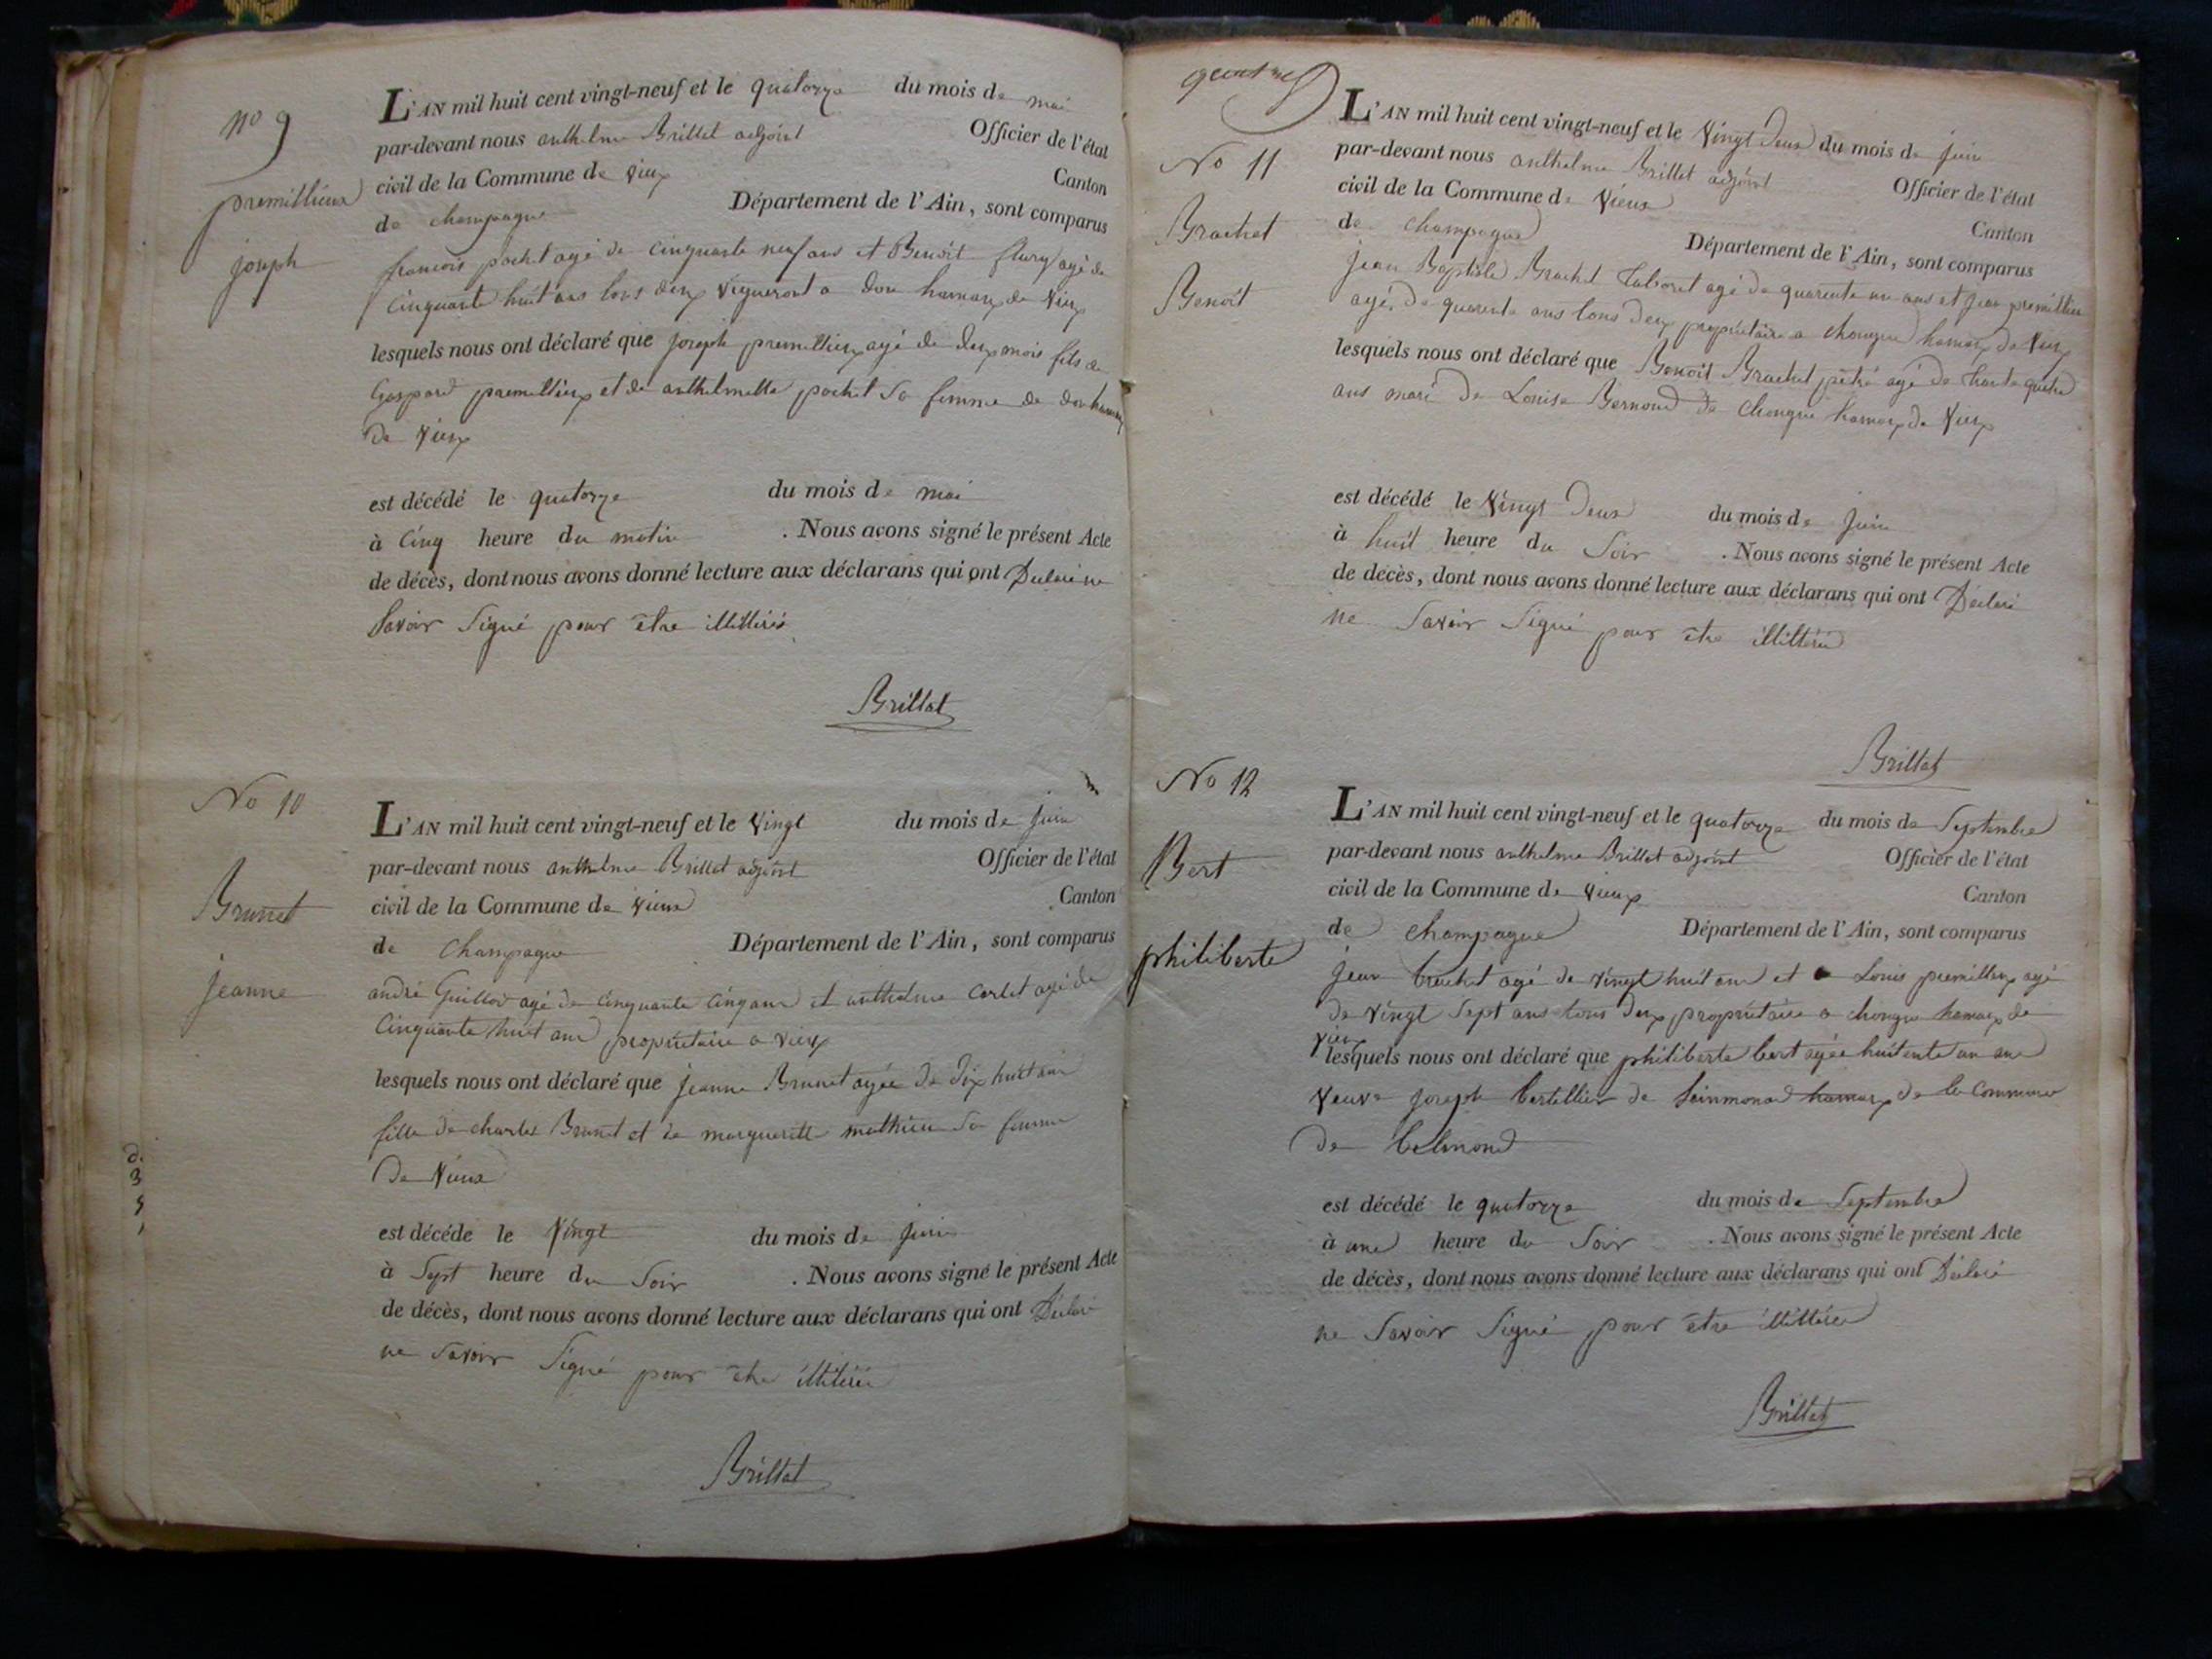 no 9
premillieux
joseph
L'AN mil huit cent vingt-neuf et le quatorze du mois de mai
par-devant nous anthelme Brillat adjoint Officier de l'état
civil de la Commune de vieux Canton
de champagne Département de l'Ain, sont comparus
francois pochet agé de cinquante neuf ans et Benoit fleury agé de
cinquante huit ans tous deux vigneront a don hamaux de vieux
lesquels nous ont déclaré que joseph premillieux agé de deux mois fils de
Gaspard premillieux et de anthelmette pochet sa femme de don hamaux
de vieux
est décédé le quatorze du mois de mai
à cinq heure du matin . Nous avons signé le présent Acte
de décès, dont nous avons donné lecture aux déclarans qui ont Declaré ne
Savoir Signé pour être illittérés
Brillat
No 10
Brunet
jeanne
L'AN mil huit cent vingt-neuf et le vingt du mois de juin
par-devant nous anthelme Brillat adjoint Officier de l'état
civil de la Commune de vieux Canton
de Champagne Département de l'Ain, sont comparus
andré Guillot agé de cinquante cinq ans et anthelme carlet agé de
cinquante huit ans propriétaire a vieux
lesquels nous ont déclaré que jeanne Brunet agée de dix huit ans
fille de charles Brunet et de marguerite mathieu sa femme
de vieux
est décédé le vingt du mois de juin
à Sept heure du Soir . Nous avons signé le présent Acte
de décès, dont nous avons donné lecture aux déclarans qui ont Déclaré
ne Savoir Signé pour être illitéré
Brillat
No 11
Brachet
Benoit
L'AN mil huit cent vingt-neuf et le vingt Deux du mois de juin
par-devant nous anthelme Brillat adjoint Officier de l'état
civil de la Commune de vieux Canton
de champagne Département de l'Ain, sont comparus
jean Baptiste Brachet Taboret agé de quarente un ans et jean premillieu
agé de quarente ans tous deux propriétaire a chongne hamaux de vieux
lesquels nous ont déclaré que Benoit Brachet agé de trente quatre
ans mari de Louise Bernoud de chongne hamaux de vieux
est décédé le vingt Deux du mois de juin
à huit heure du Soir . Nous avons signé le présent Acte
de décès, dont nous avons donné lecture aux déclarans qui ont Déclaré
ne Savoir Signé pour être illittéré
Brillat
No 12
Bert
philiberte
L'AN mil huit cent vingt-neuf et le quatorze du mois de Septembre
par-devant nous anthelme Brillat adjoint Officier de l'état
civil de la Commune de vieux Canton
de champagne Département de l'Ain, sont comparus
jean brachet agé de vingt huit ans et Louis premillieux agé
de vingt Sept ans tous deux propriétaire a chongne hamaux de
vieux
lesquels nous ont déclaré que philiberte bert agée huitente un ans
veuve joseph bertellier de hamaux de la commune
de belmond
est décédé le quatorze du mois de Septembre
à une heure du Soir . Nous avons signé le présent Acte
de décès, dont nous avons donné lecture aux déclarans qui ont Déclaré
ne Savoir Signé pour être illittéré
Brillat